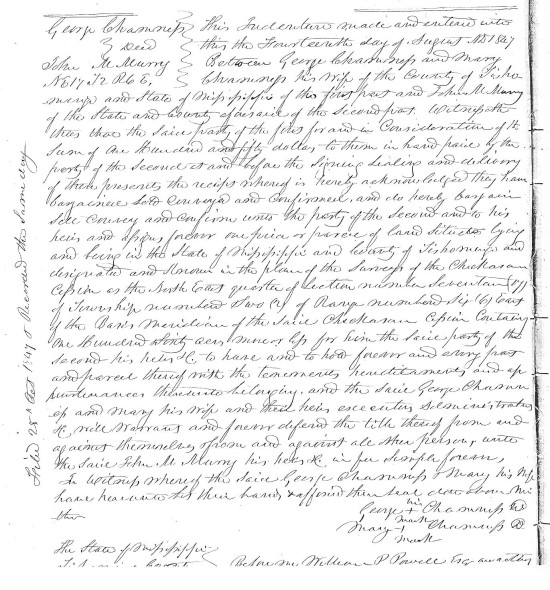 George Chamness
Deed
John M Murry
NE 17 T2 R6 E,
This Indenture made and entered into
this the Fourteenth day of August AD 1847
Between George Chamness and Mary
Chamness his wife of the County of Tisho
mingo and State of Mississippi of the first part and John M Murry
of the State and County aforesaid of the Second part. Witnesseth
that the Said party of the first for and in Consideration of the
Sum of One Hundred and fifty dollars to them in hand paid by the
party of the Second at and before the Signing Sealing and delivery
of these presents the receipt whereof is hereby acknowledged they have
bargained Sold Conveyed and Confirmed, and do hereby bargain
Sell Convey and Confirm unto the party of the Second and to his
heirs and assigns forever one piece or parcel of land Situate lying
and being in the State of Mississippi and County of Tishomingo and
designated and Known in the plan of the Surveys of the Chickasaw
Cession as the North East quarter of Section number Seventeen (17)
of Township number Two (2) of Range number Six (6) East
of the Basis Meridian of the Said Chickasaw Cession Containing
One Hundred Sixty acres more or less for him the Said party of the
Second his heirs &c to have and to hold forever and every part
and parcel thereof with the tenements hereditaments and ap
purtenances thereunto belonging, and the Said George Chamn
ess and Mary his Wife and their heirs executors administrators
&c will Warrant and forever defend the title thereof from and
against themselves & from and against all other persons, unto
the Said John M Murry his heirs &c in fee Simple forever,
In Witness whereof the Said George Chamness & Mary his Wife
have hereunto Set their hands & affixed their Seal date above Wri
tten
George his + mark Chamness
Mary + mark Chamness
The State of Mississippi
Before me William P Powell Esq an acting
Filed 28th Oct 1847 & Recorded the Same day